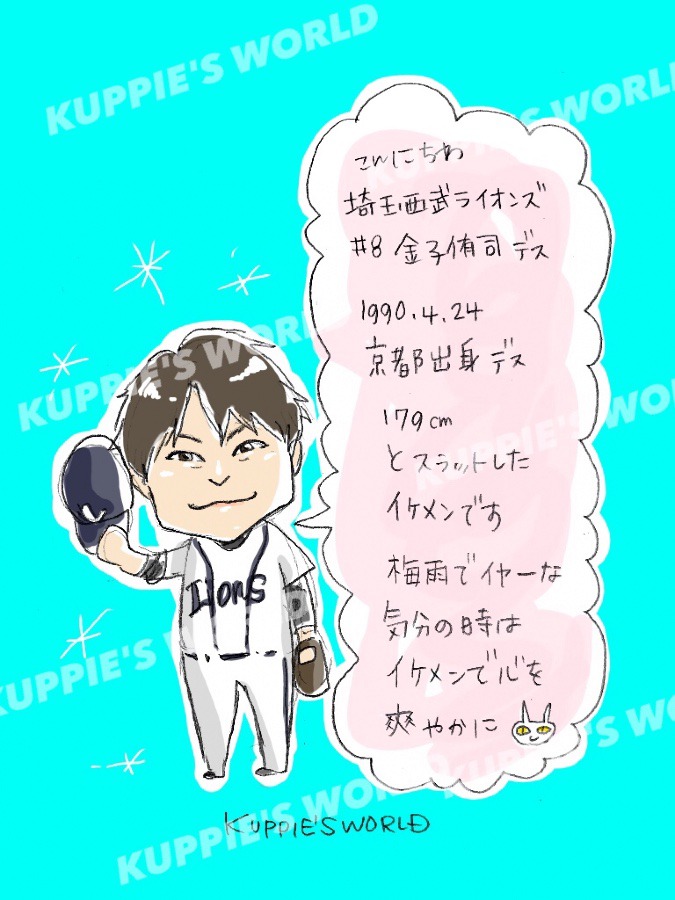 KUPPIE'S WORLD
KUPPIE'S WORLD
こんにちわ
埼玉西武ライオンズ
#8 金子侑司デス
1990.4.24
京都出身デス
179cm
とスラットした
イケメンです
梅雨でイヤーな
気分の時は
イケメンで心を
爽やかに
Lions
KUPPIE'S WORLD
KUPPIE'S WORLD
KUPPIE'S WORLD
KUPPIE'S WORLD
KUPPIE'S WORLD
KUPPIE'S WORLD
KUPPIE'SWORLD